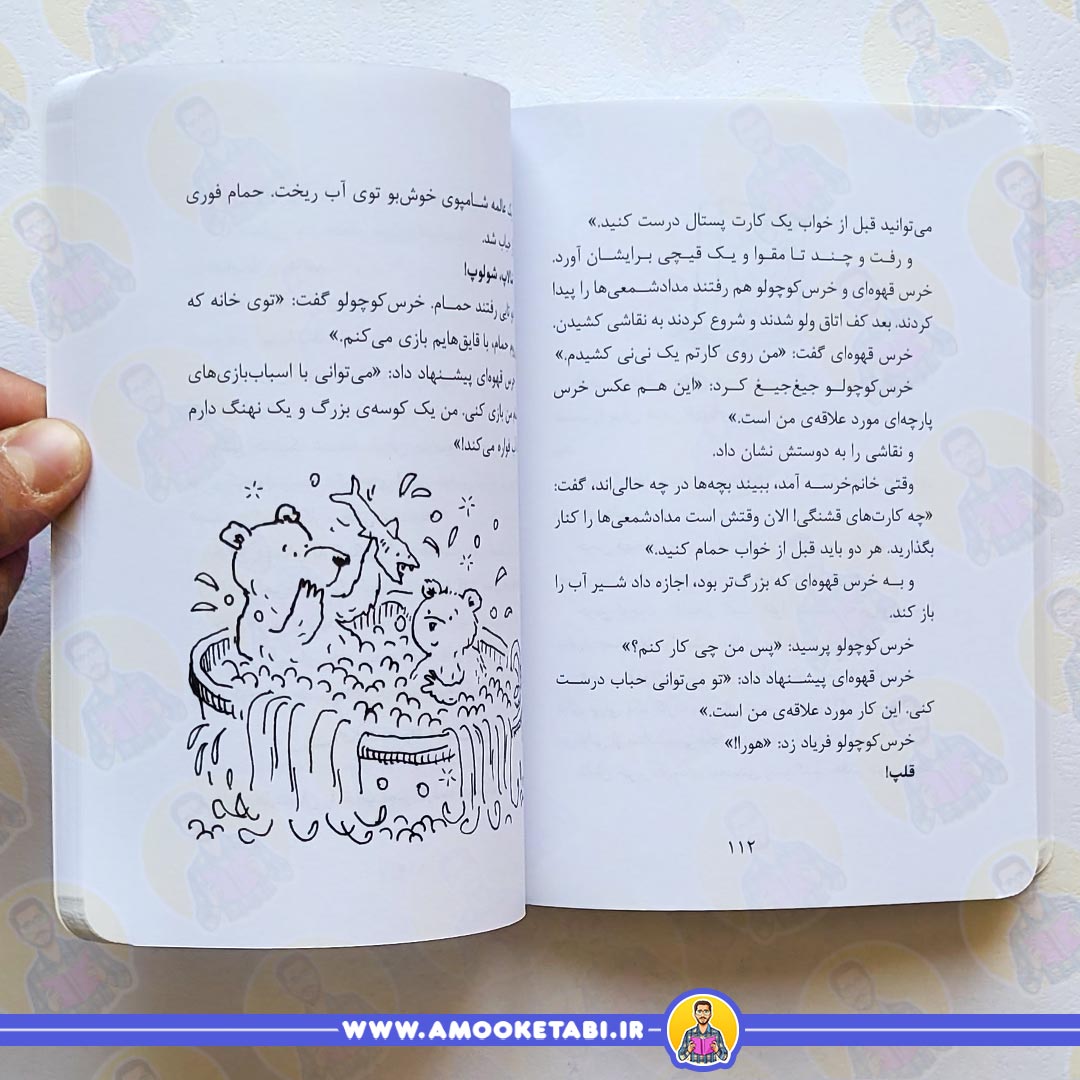 می‌توانید قبل از خواب یک کارت پستال درست کنید.»
و رفت و چند تا مقوا و یک قیچی برایشان آورد.
خرس قهوه‌ای و خرس‌کوچولو هم رفتند مدادشمعی‌ها را پیدا
کردند. بعد کف اتاق ولو شدند و شروع کردند به نقاشی کشیدن.
خرس قهوه‌ای گفت: «من روی کارتم یک نی‌نی کشیدم.»
خرس‌کوچولو جیغ‌جیغ کرد: «این هم عکس خرس
پارچه‌ای مورد علاقه‌ی من است.»
و نقاشی را به دوستش نشان داد.
وقتی خانم‌خرسه آمد، ببیند بچه‌ها در چه حالی‌اند، گفت:
«چه کارت‌های قشنگی! الان وقتش است مدادشمعی‌ها را کنار
بگذارید. هر دو باید قبل از خواب حمام کنید.»
و به خرس قهوه‌ای که بزرگ‌تر بود، اجازه داد شیر آب را
باز کند.
خرس‌کوچولو پرسید: «پس من چی کار کنم؟»
خرس قهوه‌ای پیشنهاد داد: «تو می‌توانی حباب درست
کنی. این کار مورد علاقه‌ی من است.»
خرس‌کوچولو فریاد زد: «هورا!»
قلپ!
۱۱۲
عالمه شامپوی خوش‌بو توی آب ریخت. حمام فوری
حباب شد.
شولوپ!
رفتند حمام. خرس‌کوچولو گفت: «توی خانه که
حمام، با قایق‌هایم بازی می‌کنم.»
قهوه‌ای پیشنهاد داد: «می‌توانی با اسباب‌بازی‌های
من بازی کنی. من یک کوسه‌ی بزرگ و یک نهنگ دارم
فواره می‌کند!»
WWW.AMOOKETABI.IR